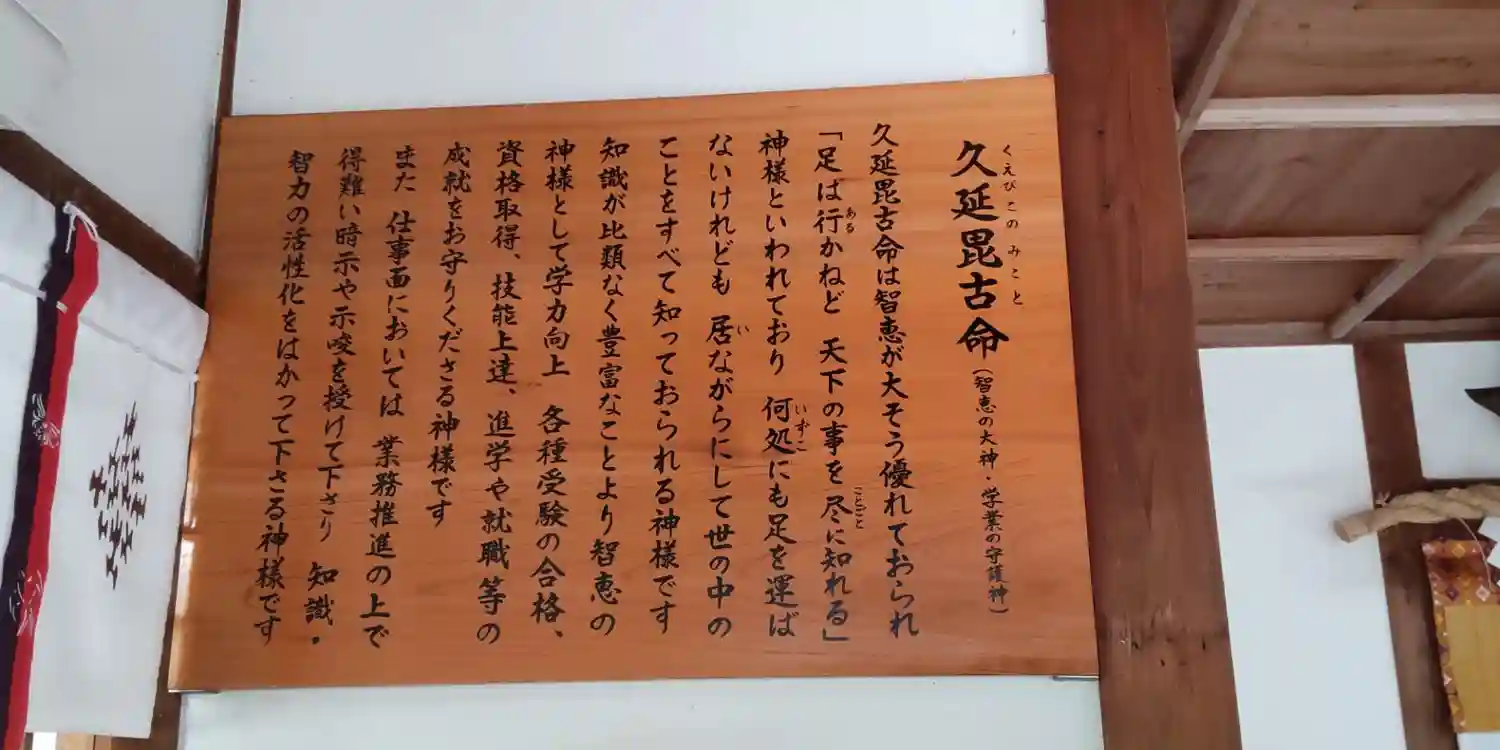 久延毘古命（智恵の大神・学業の守護神）
くえびこの みこと
久延毘古命は智恵が大そう優れておられ
「足は行かねど 天下の事を尽に知れる」
ある
ことごと
神様といわれており 何処にも足を運ば
いずこ
ないけれども 居ながらにして世の中の
い
ことをすべて知っておられる神様です
知識が比類なく豊富なことより智恵の
神様として学力向上 各種受験の合格、
資格取得、技能上達、進学や就職等の
成就をお守りくださる神様です
また 仕事面においては 業務推進の上で
得難い暗示や示唆を授けて下さり 知識・
智力の活性化をはかって下さる神様です